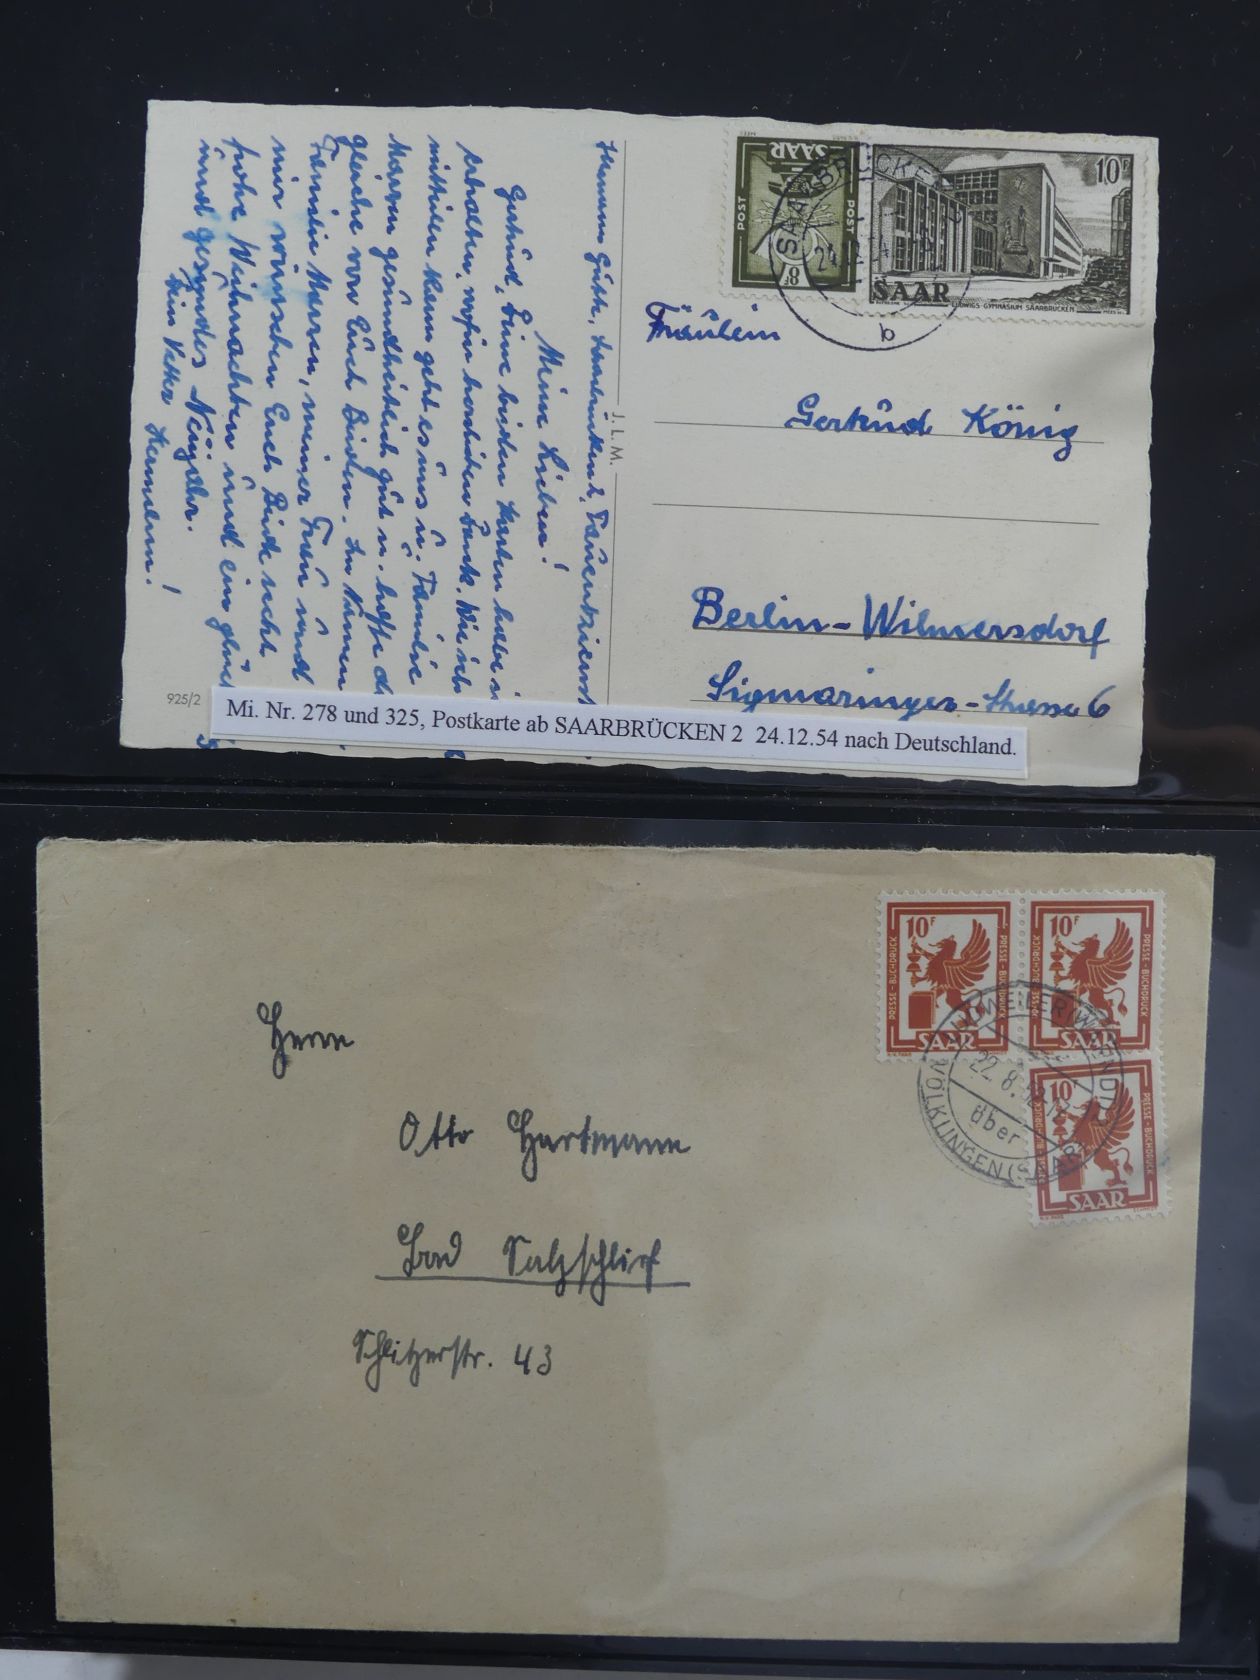 Meine Lieben!
Gertrud, Deine beiden Karten habe i
erhalten, wofür herzlichen Dank. Wie ich
mitteilen kann geht es uns u. Familie
Marm gesundheitlich gut u. hoffe d
gleiche von Euch Beiden. Im Namen
Familie Marm, meiner Frau und
mir wünschen Euch Beide recht
frohe Weihnachten und ein glück
und gesundes Neujahr.
Dein Vetter
Hermann!
925/2
J. L. M.
SAAR
POST
POST
8F
10F
SAAR
LUDWIGS-GYMNASIUM SAARBRÜCKEN
SAARBRÜCKEN 2
b
Fräulein
Gertrud König
Berlin-Wilmersdorf
Sigmaringer-Strasse 6
Mi. Nr. 278 und 325, Postkarte ab SAARBRÜCKEN 2 24.12.54 nach Deutschland.
10F
PRESSE-BUCHDRUCK
PRESSE-BUCHDRUCK
SAAR
10F
PRESSE-BUCHDRUCK
PRESSE-BUCHDRUCK
SAAR
10F
PRESSE-BUCHDRUCK
PRESSE-BUCHDRUCK
SAAR
22.8.52
über
VÖLKLINGEN (SAAR)
Herrn
Otto Hartmann
Bad Salzschlirf
Schlitzerstr. 43